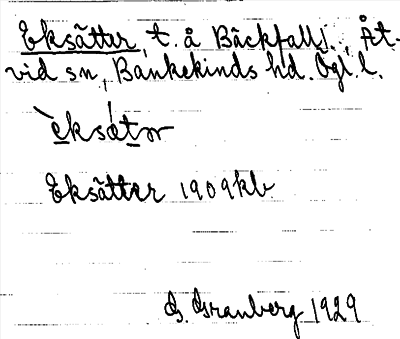 Eksätter, t. å Bäckfall, Åt-
vid sn, Bankekinds hd. Ögl. l.
èksátər
Eksätter 1909 kb
G. Granberg 1929